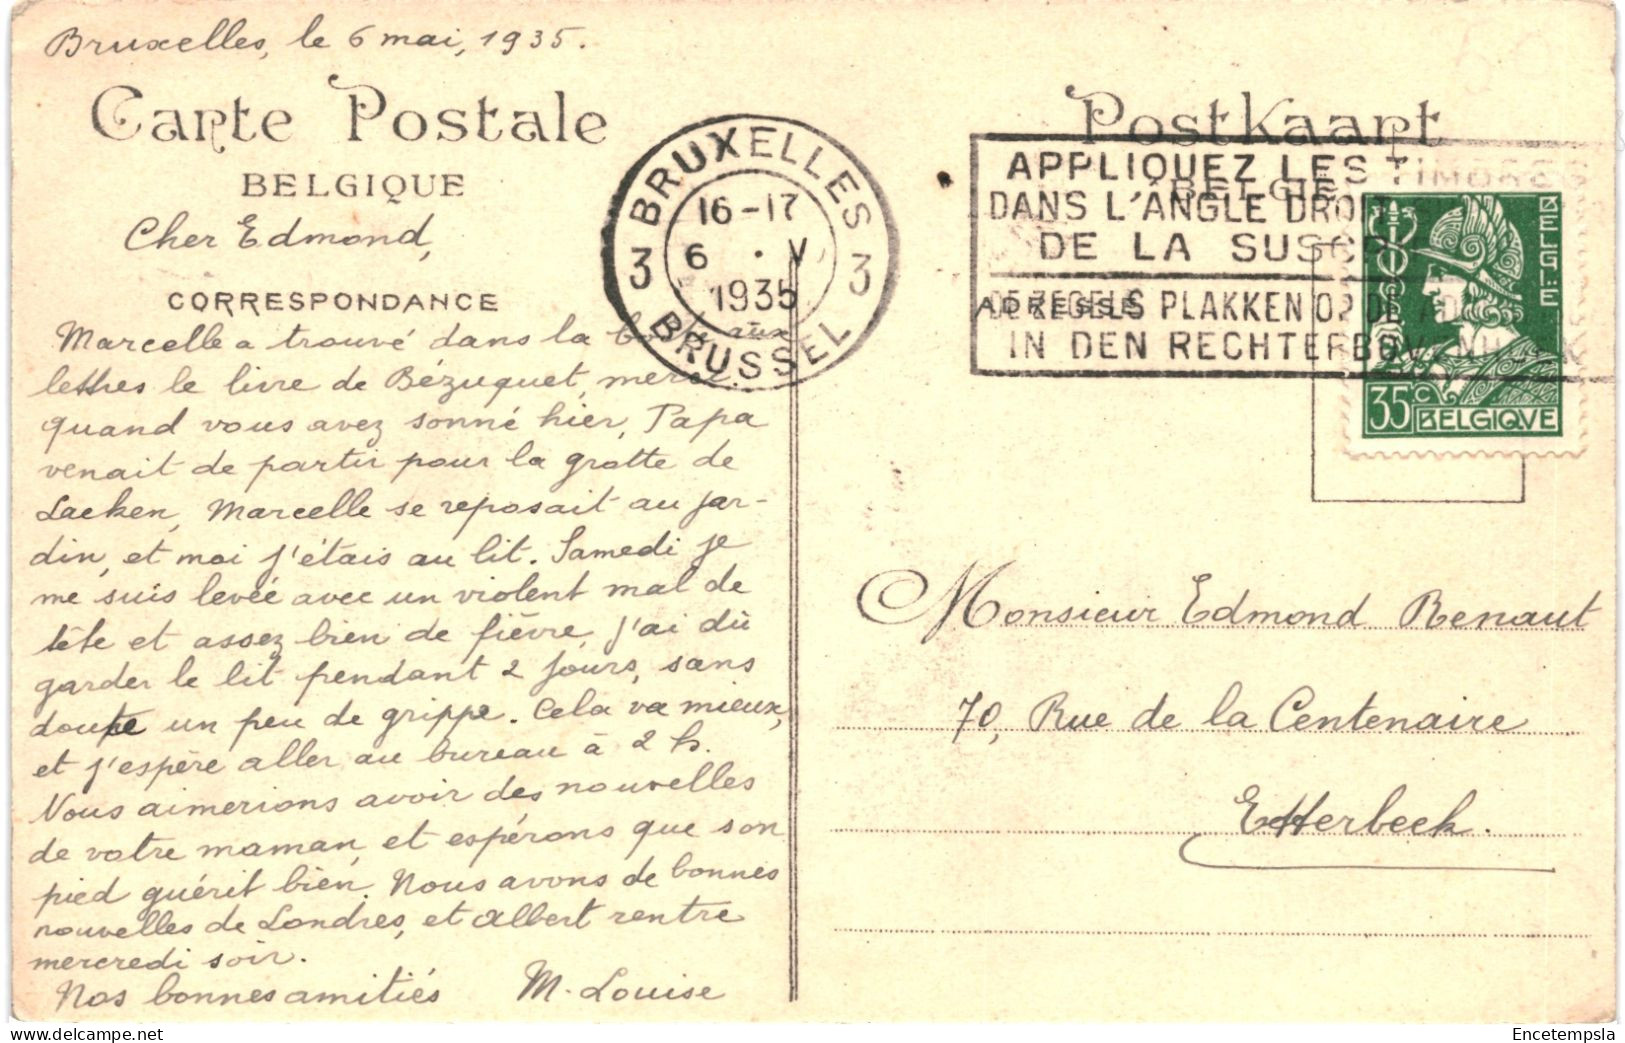 Bruxelles, le 6 mai, 1935.
Carte Postale
BELGIQUE
Cher Edmond,
CORRESPONDANCE
Marcelle a trouvé dans la aux
lettres le livre de Bézuquet, merci.
quand vous avez sonné hier, Papa
venait de partir pour la grotte de
Laeken, Marcelle se reposait au jar-
din, et moi j'étais au lit. Samedi je
me suis levée avec un violent mal de
tête et assez bien de fièvre, j'ai dû
garder le lit pendant 2 jours, sans
doute un peu de grippe. Cela va mieux,
et j'espère aller au bureau à 2 h.
Nous aimerions avoir des nouvelles
de votre maman, et espérons que son
pied guérit bien. Nous avons de bonnes
nouvelles de Londres, et Albert rentre
mercredi soir.
Nos bonnes amitiés M. Louise
BRUXELLES
3 3
16-17
6 . V
1935
BRUSSEL
Postkaart
BELGIË
APPLIQUEZ LES TIMBRES
DANS L'ANGLE DROIT
DE LA SUSCR
ADRESSE
DE ZEGELS PLAKKEN OP DE
IN DEN RECHTERBOVENHOEK
BELGIE
35c BELGIQVE
Monsieur Edmond Renaut
70, Rue de la Centenaire
Etterbeek.
Encetempsla